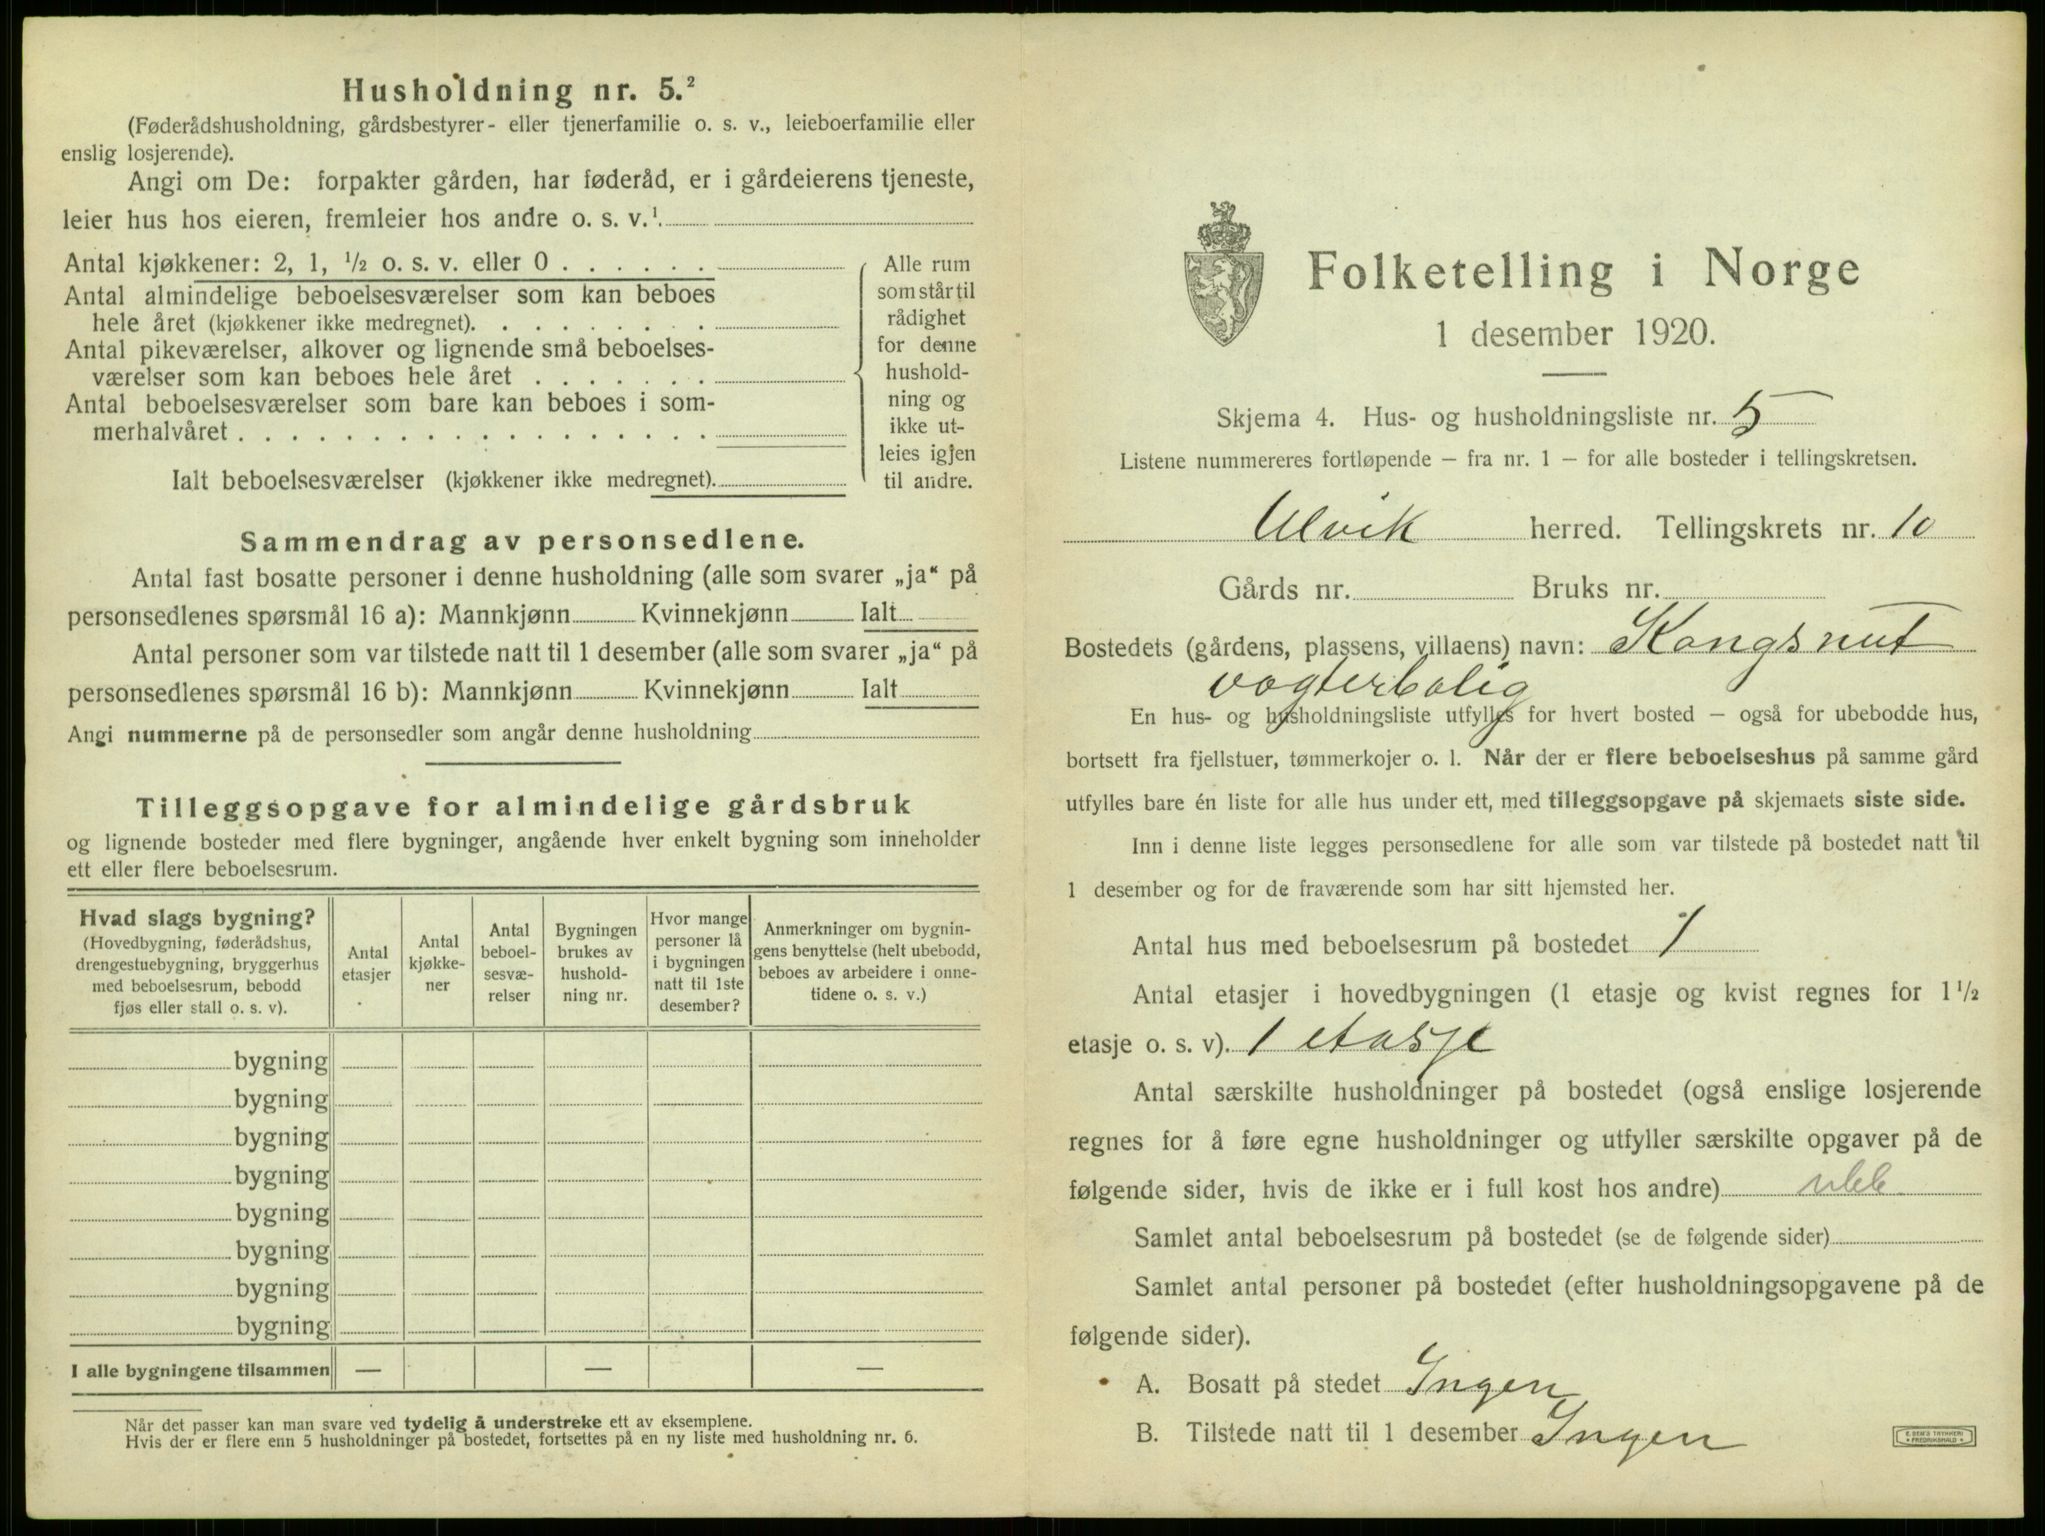 Husholdning nr. 5.²
(Føderådshusholdning, gårdsbestyrer- eller tjenerfamilie o. s. v., leieboerfamilie eller
enslig losjerende).
Angi om De: forpakter gården, har føderåd, er i gårdeierens tjeneste,
leier hus hos eieren, fremleier hos andre o. s. v.¹.
Antal kjøkkener: 2, 1, ½ o. s. v. eller 0 . . . . . .
Antal almindelige beboelsesværelser som kan beboes
hele året (kjøkkener ikke medregnet). . . . . . . . .
Antal pikeværelser, alkover og lignende små beboelses-
værelser som kan beboes hele året . . . . . . .
Antal beboelsesværelser som bare kan beboes i som-
merhalvåret . . . . . . . . . . . . . . . . . .
Ialt beboelsesværelser (kjøkkener ikke medregnet).
Alle rum
som står til
rådighet
for denne
hushold-
ning og
ikke ut-
leies igjen
til andre.
Sammendrag av personsedlene.
Antal fast bosatte personer i denne husholdning (alle som svarer „ja“ på
personsedlenes spørsmål 16 a): Mannkjønn Kvinnekjønn Ialt
Antal personer som var tilstede natt til 1 desember (alle som svarer „ja“ på
personsedlenes spørsmål 16 b): Mannkjønn Kvinnekjønn Ialt
Angi nummerne på de personsedler som angår denne husholdning
Tilleggsopgave for almindelige gårdsbruk
og lignende bosteder med flere bygninger, angående hver enkelt bygning som inneholder
ett eller flere beboelsesrum.
Hvad slags bygning?
(Hovedbygning, føderådshus,
drengestuebygning, bryggerhus
med beboelsesrum, bebodd
fjøs eller stall o. s. v).
Antal
etasjer
Antal
kjøkke-
ner
Antal
beboel-
sesvæ-
relser
Bygningen
brukes av
hushold-
ning nr.
Hvor mange
personer lå
i bygningen
natt til 1ste
desember?
Anmerkninger om bygnin-
gens benyttelse (helt ubebodd,
beboes av arbeidere i onne-
tidene o. s. v.)
bygning
bygning
bygning
bygning
bygning
bygning
bygning
bygning
I alle bygningene tilsammen — — —
Når det passer kan man svare ved tydelig å understreke ett av eksemplene.
Hvis der er flere enn 5 husholdninger på bostedet, fortsettes på en ny liste med husholdning nr. 6.
Folketelling i Norge
1 desember 1920.
Skjema 4. Hus- og husholdningsliste nr. 5
Listene nummereres fortløpende – fra nr. 1 – for alle bosteder i tellingskretsen.
Ulvik herred. Tellingskrets nr. 10
Gårds nr. Bruks nr.
Bostedets (gårdens, plassens, villaens) navn: Kongsnut
vogterbolig
En hus- og husholdningsliste utfylles for hvert bosted – også for ubebodde hus,
bortsett fra fjellstuer, tømmerkojer o. l. Når der er flere beboelseshus på samme gård
utfylles bare én liste for alle hus under ett, med tilleggsopgave på skjemaets siste side.
Inn i denne liste legges personsedlene for alle som var tilstede på bostedet natt til
1 desember og for de fraværende som har sitt hjemsted her.
Antal hus med beboelsesrum på bostedet 1
Antal etasjer i hovedbygningen (1 etasje og kvist regnes for 1 ½
etasje o. s. v). 1 etasje
Antal særskilte husholdninger på bostedet (også enslige losjerende
regnes for å føre egne husholdninger og utfyller særskilte opgaver på de
følgende sider, hvis de ikke er i full kost hos andre)
Samlet antal beboelsesrum på bostedet (se de følgende sider)
Samlet antal personer på bostedet (efter husholdningsopgavene på de
følgende sider).
A. Bosatt på stedet Ingen
B. Tilstede natt til 1 desember Ingen
E. SEM'S TRYKKERI
FREDRIKSHALD